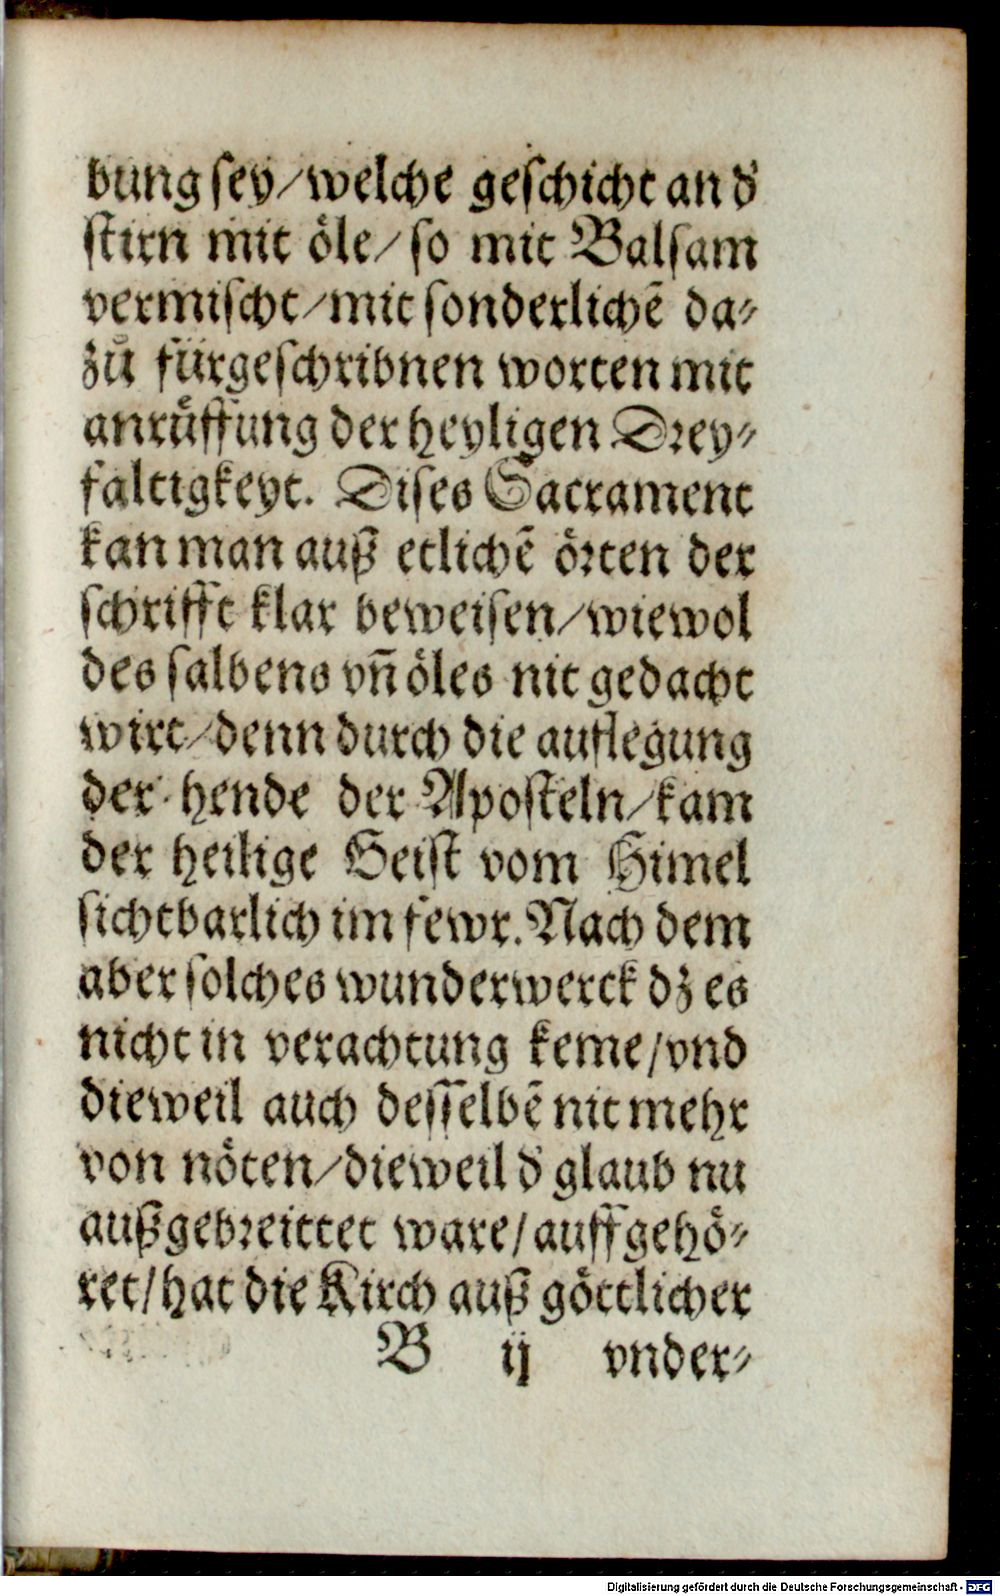 bung sey/welche geschicht an d'
stirn mit öle/so mit Balsam
vermischt/mit sonderlichē da⸗
zů fürgeschribnen worten mit
anrüffung der heyligen Drey⸗
faltigkeyt. Dises Sacrament
kan man auß etlichē örten der
schrifft klar beweisen/wiewol
des salbens vn̄ öles nit gedacht
wirt/denn durch die auflegung
der hende der Aposteln/kam
der heilige Geist vom Himel
sichtbarlich im fewr. Nach dem
aber solches wunderwerck dz es
nicht in verachtung keme/vnd
dieweil auch desselbē nit mehr
von nöten/dieweil d' glaub nu
außgebreittet ware/auffgehö⸗
ret/hat die Kirch auß göttlicher
B ij vnder⸗
Digitalisierung gefördert durch die Deutsche Forschungsgemeinschaft - DFG